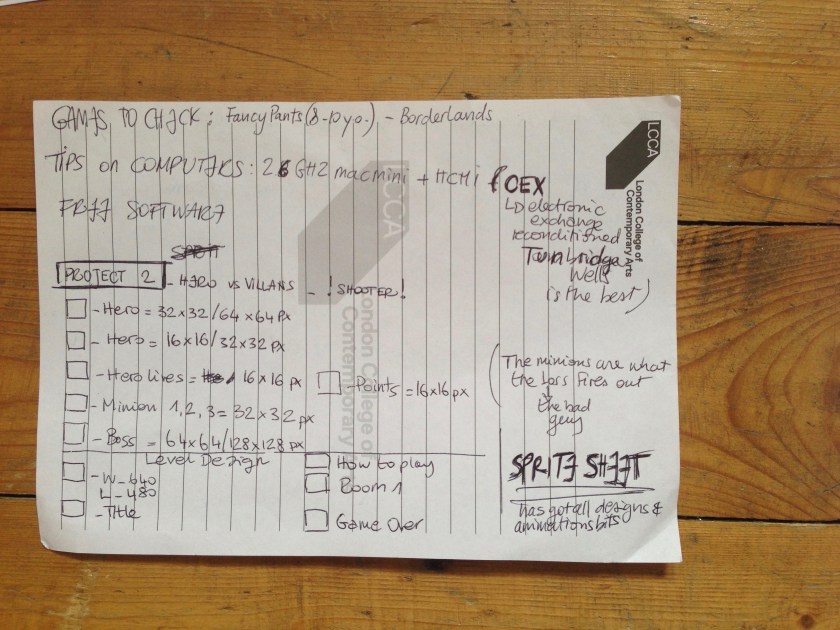 GAMES TO CHECK: Fancy Pants (8-10 yo.) - Borderlands
TIPS on COMPUTERS: 26 GHZ macmini + HCMi
(CEX
↳ electronic
exchange
reconditioned
Tunbridge
Wells
is the best)
FREE SOFTWARE
PROJECT 2 - HERO VS VILLANS - ! SHOOTER!
- Hero = 32x32/64x64px
- Hero = 16x16/32x32px
- Hero lives = 16x16px
- Points = 16x16px
- Minion 1, 2, 3 = 32x32px
- Boss = 64x64/128x128px
(The minions are what
the boss fires out
the bad
guy
Level Design
- W_640
L_480
- Title
How to play
Room 1
Game Over
SPRITE SHEET
has got all designs &
animations bits
LCCA
London College of
Contemporary Arts
LCCA
London College of
Contemporary